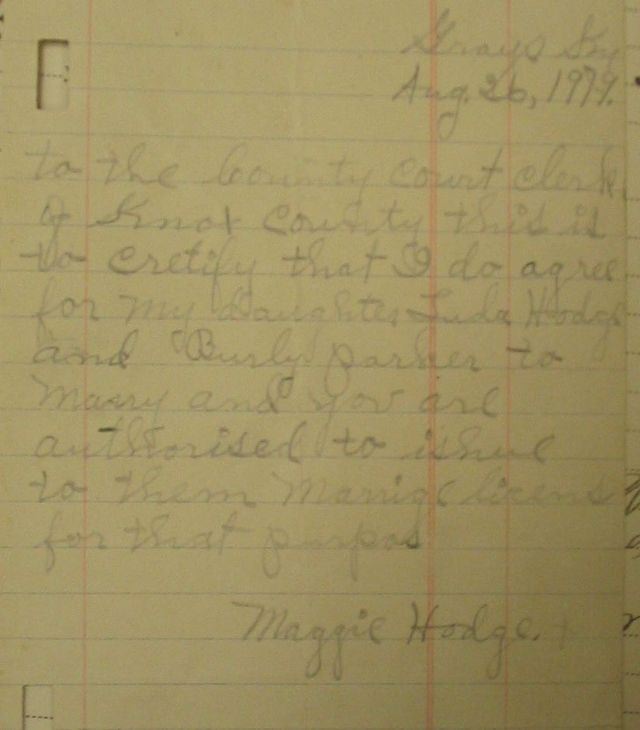 Grays Ky
Aug. 26, 1979.
to the County Court clerk
of Knox County this is
to cretify that I do agree
for my daughter Luda Hodge
and Burly parker to
Marry and you are
authorised to ishue
to them Marrige licens
for that purpos
Maggie Hodge.